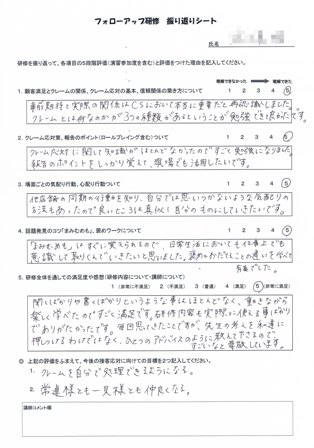 フォローアップ研修 振り返りシート
氏名
研修を振り返って、各項目の5段階評価(演習参加度を含む)と評価をつけた理由を記入してください。
理解できなかった 理解できた
1. 顧客満足とクレームの関係、クレーム応対の基本、信頼関係の築き方について 1 2 3 4 5
事前期待と実際の関係はCSにおいて本当に重要だと再認識しました。
クレームとは何なのかが3つの種類があるということが勉強でき良かったです。
2. クレーム応対策、報告のポイント(ロールプレイング含む)ついて 1 2 3 4 5
クレーム応対に関して知識がほとんどなかったのですごく勉強になりました。
報告のポイントをしっかり覚えて、現場でも活用したいです。
3. 場面ごとの気配り行動、心配り行動ついて 1 2 3 4 5
他店舗の同期の行動を知り、自分では思いつかないような気配りの
方法もあったので良いところは真似し自分のものにしていきたいです。
4. 話題発見のコツ「まみむめも」、褒めワークについて 1 2 3 4 5
「まみむめも」はすぐに覚えられるので、日常生活においても仕事上でも
意識して取りくんでいきたいと思いました。褒めとおだてることの違いを学べて
有意でした。
5. 研修全体を通しての満足度や感想(研修内容について・講師について)
1(非常に不満足) 2(不満足) 3(普通) 4(満足) 5(非常に満足)
聞くばかりや書くばかりというような事はほとんどなく、動きながら
楽しく学べたのですごく満足です。研修内容も実際に使える事ばかり
でありがたかったです。毎回思ってきたことですが、先生の考えを私達に
押しつけるわけではなく、ひとつのアドバイスのように教えて下さるので
すごいなと尊敬しています。
◎ 上記の評価をふまえて、今後の接客応対に向けての目標を2つ記入してください。
1. クレームを自分で処理できるようになる。
2. 常連様とも一見様とも仲良くなる。
講師コメント欄